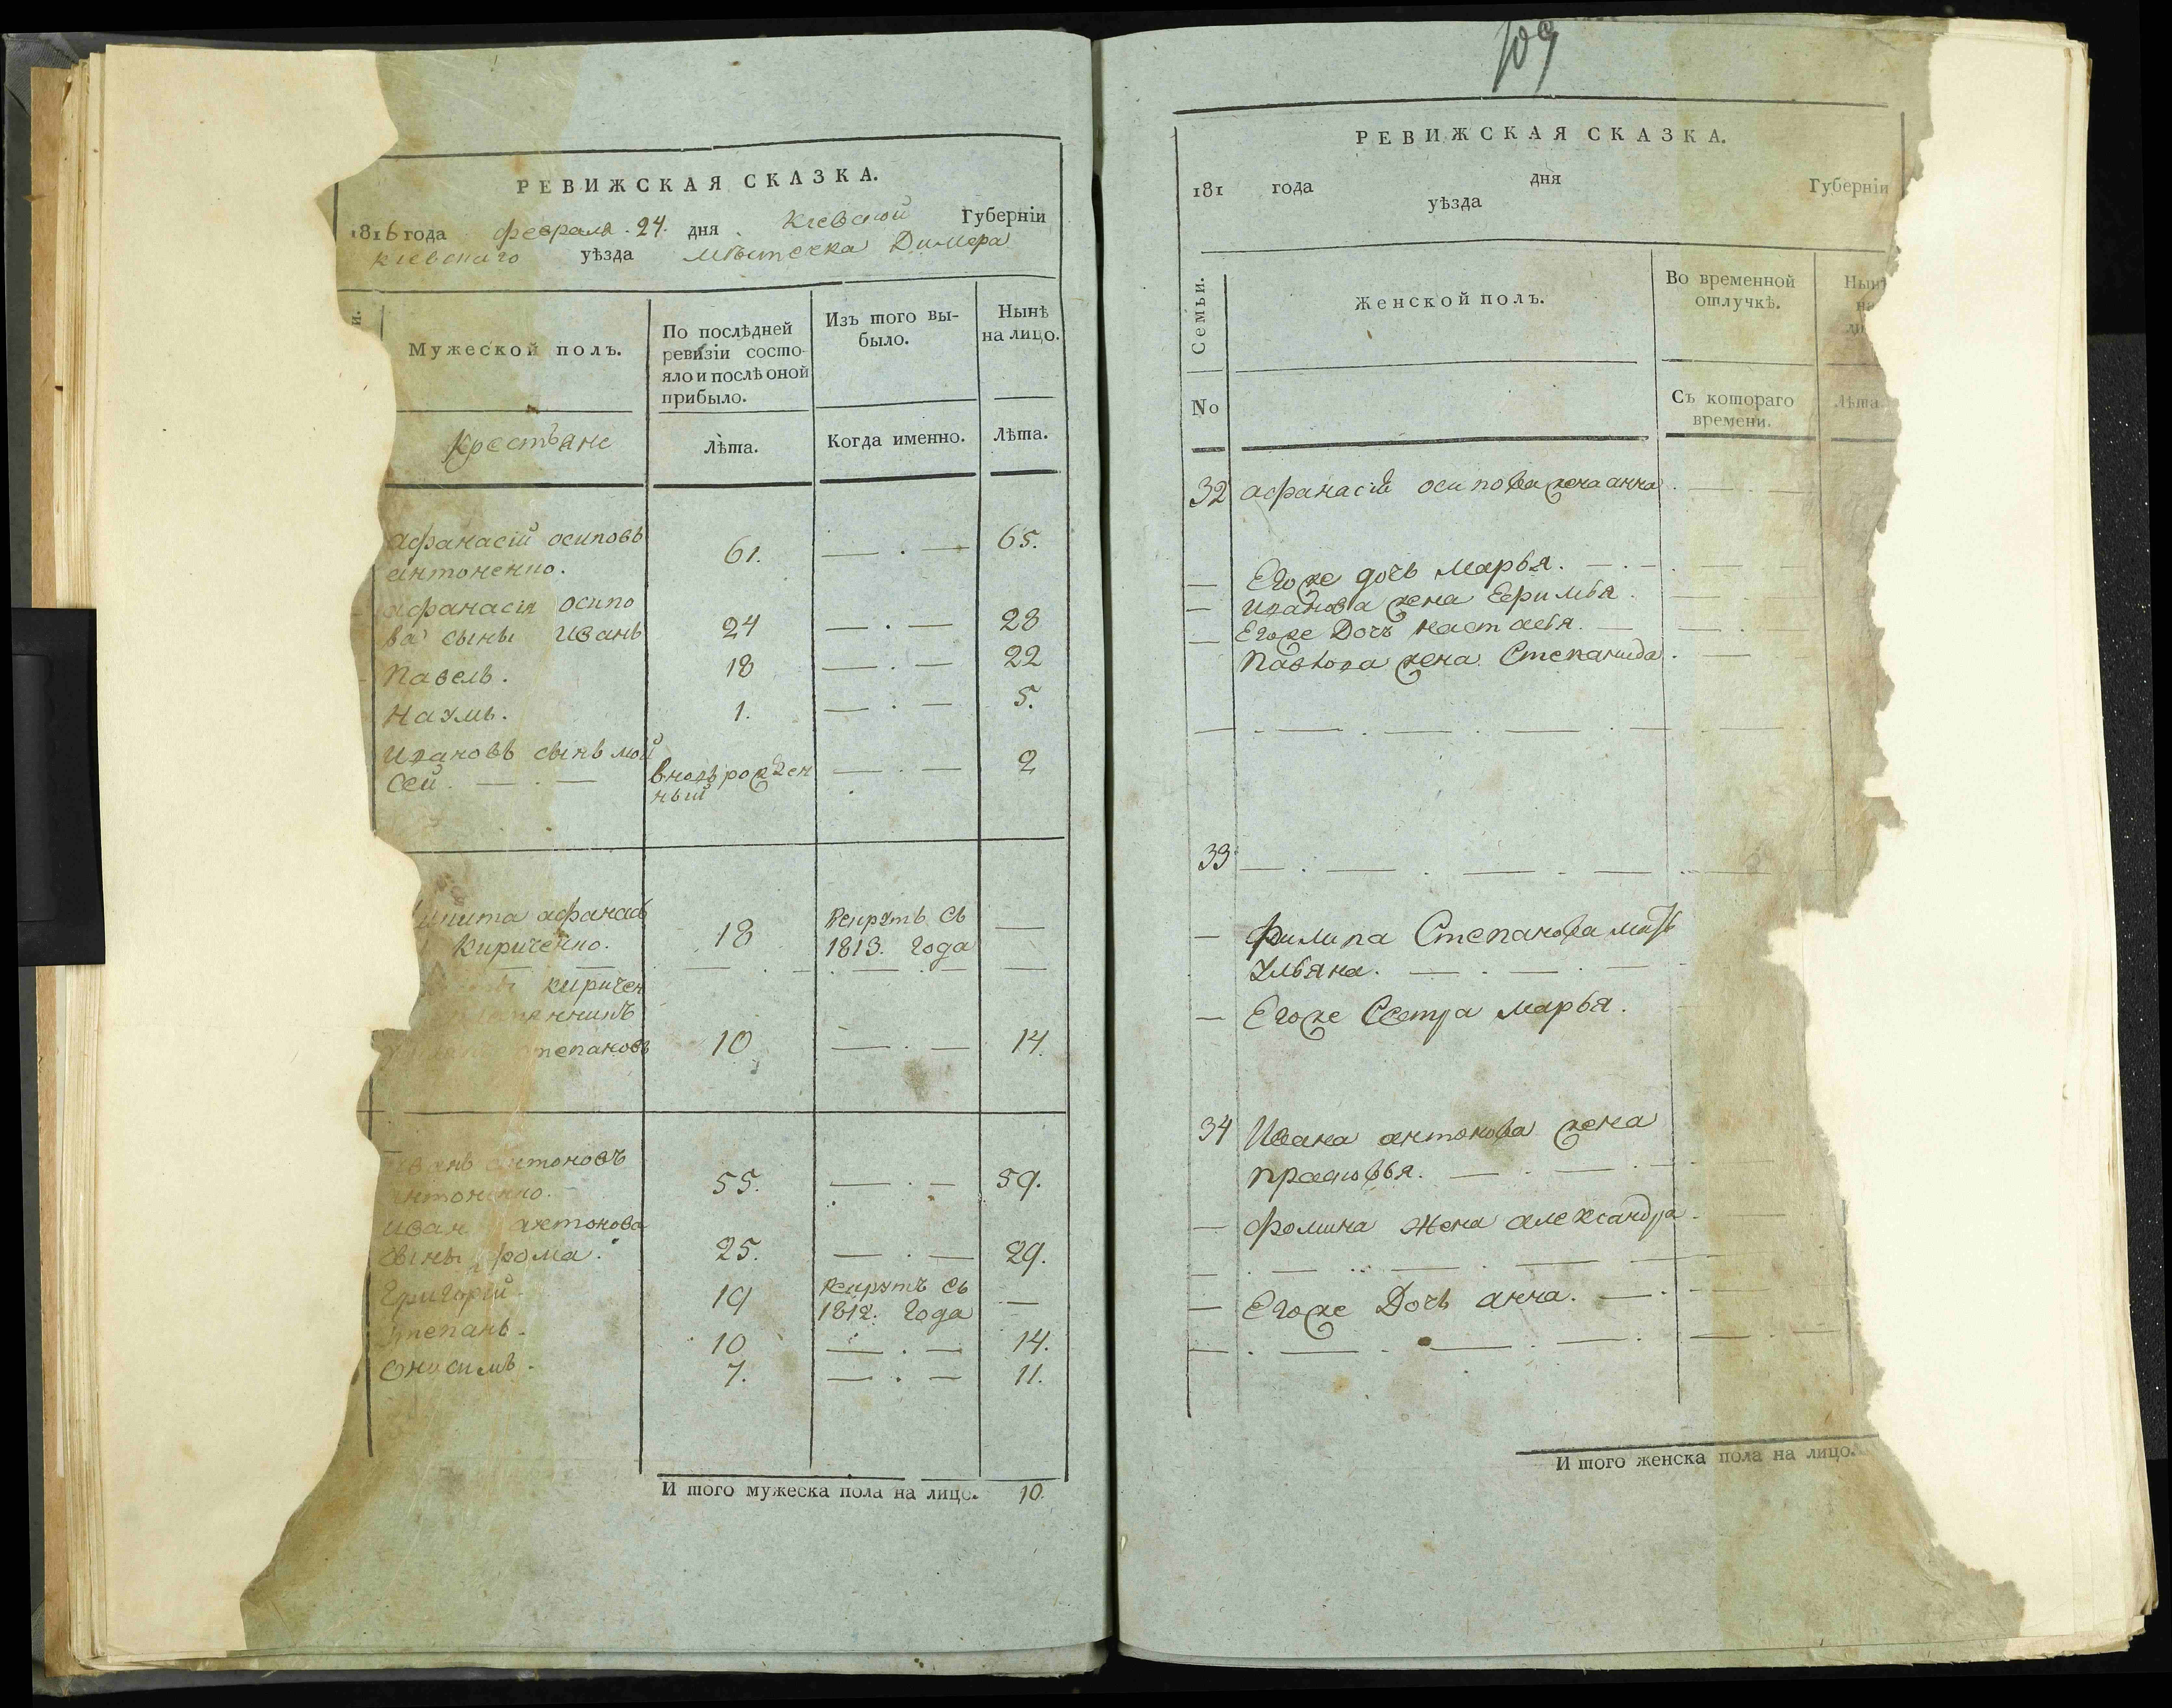 РЕВИЖСКАЯ СКАЗКА.
1816 года февраля 24. дня Киевской Губерніи
Киевскаго уѣзда мѣстечка Димера
Мужеской полъ.
По послѣдней
ревизіи состо-
яло и послѣ оной
прибыло.
Изъ того вы-
было.
Нынѣ
на лицо.
Крестьяне
Лѣта.
Когда именно.
Лѣта.
Афанасій осиповъ
антоненко.
61.
65.
афанасія осипо
ва сыны иванъ
24
28
Павелъ.
18
22
Наумъ.
1.
5.
Ивановъ сынъ мой
сей.
вновь рожден
ный
2
афанасъ
Кириченко.
18
Рекрутъ съ
1813. года
киричен
степановъ
10
14.
антоновъ
55.
59.
иван антонова
сыны фома.
25.
29.
Григорій
19
Рекрутъ съ
1812. года
степанъ.
10
14.
Онисимъ.
7.
11.
И того мужеска пола на лицо. 10.
109
РЕВИЖСКАЯ СКАЗКА.
181 года дня Губерніи
уѣзда
Семьи.
Женской полъ.
Во временной
отлучкѣ.
Нынѣ
на
No
Съ котораго
времени.
Лѣта.
32 афанасія осипова жена анна
Егоже дочь марья.
Иванова жена Ефимья.
Егоже Дочь настасья.
Павлова жена Степанида.
33
Филипа Степанова мать
Ульяна.
Егоже Сестра марья.
34 Ивана антонова жена
прасковья.
Фомина жена александра
Егоже Дочь анна.
И того женска пола на лицо.